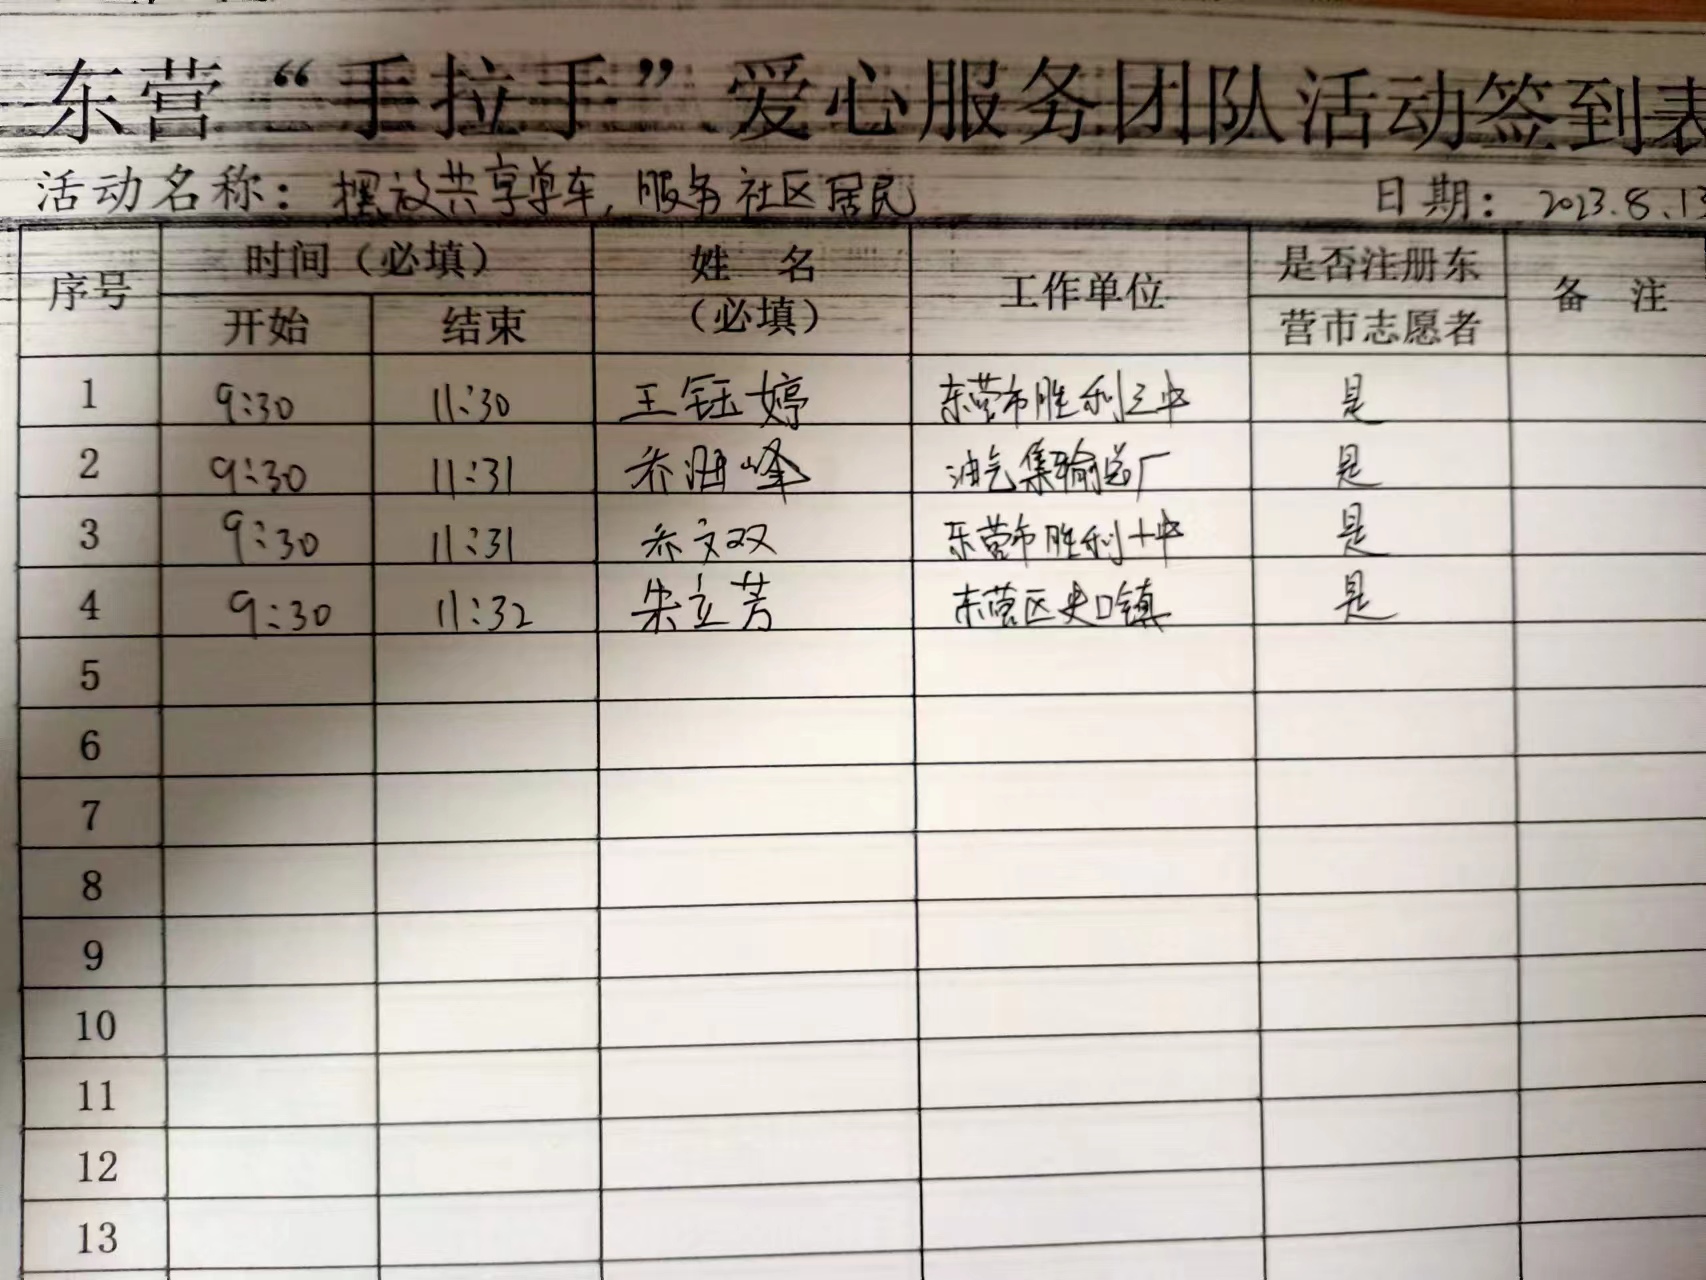 东营“手拉手”爱心服务团队活动签到表
活动名称：摆放共享单车，服务社区居民 日期：2023.8.13
序号 时间（必填） 姓 名（必填） 工作单位 是否注册东营市志愿者 备 注
开始 结束
1 9:30 11:30 王钰婷 东营市胜利三中 是
2 9:30 11:31 乔海峰 油气集输总厂 是
3 9:30 11:31 乔文双 东营市胜利十中 是
4 9:30 11:32 朱立芳 东营区史口镇 是
5
6
7
8
9
10
11
12
13